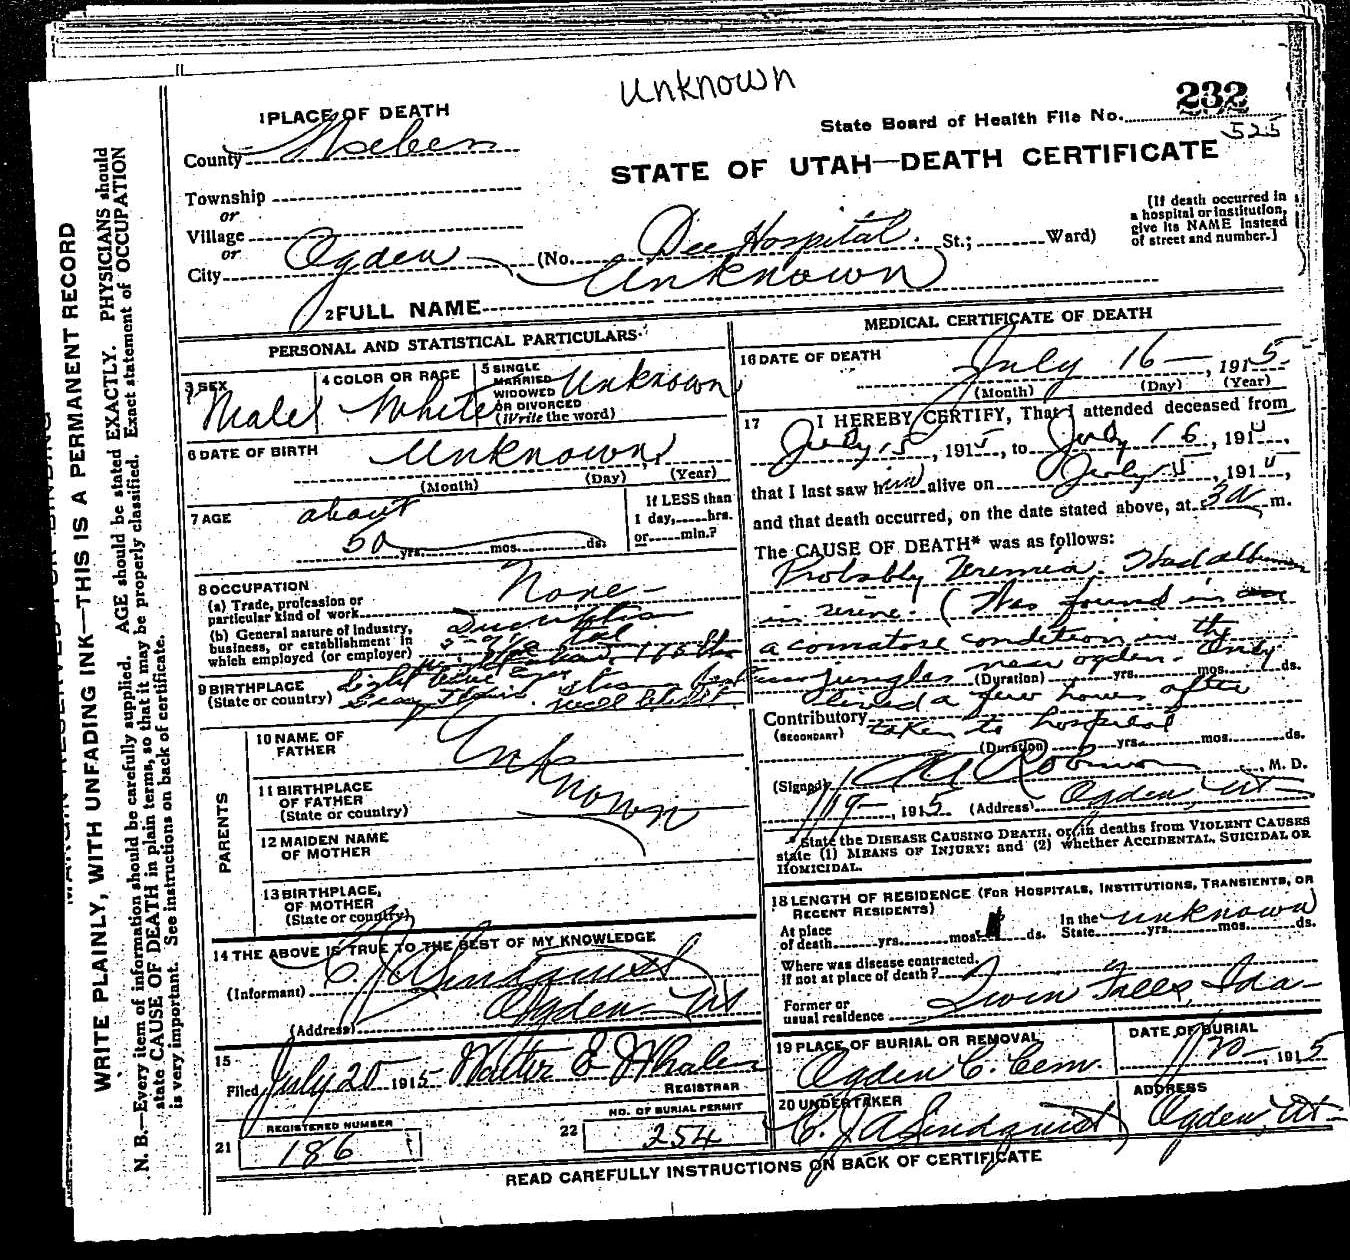 unknown
232
1 PLACE OF DEATH
State Board of Health File No.
525
County Weber
STATE OF UTAH—DEATH CERTIFICATE
Township
or
Village
or
City Ogden (No. Dee Hospital. St.; Ward)
[If death occurred in
a hospital or institution,
give its NAME instead
of street and number.]
2 FULL NAME Unknown
PERSONAL AND STATISTICAL PARTICULARS
3 SEX
Male
4 COLOR OR RACE
White
5 SINGLE
MARRIED
WIDOWED
OR DIVORCED
(Write the word)
Unknown
6 DATE OF BIRTH
Unknown
(Month) (Day) (Year)
7 AGE
about
50 yrs. mos. ds.
If LESS than
1 day, hrs.
or min.?
8 OCCUPATION
(a) Trade, profession or
particular kind of work
None
(b) General nature of industry,
business, or establishment in
which employed (or employer)
Description
175 lbs
9 BIRTHPLACE
(State or country)
Light blue eyes
Gray Hair well built
PARENTS
10 NAME OF
FATHER
Unknown
11 BIRTHPLACE
OF FATHER
(State or country)
12 MAIDEN NAME
OF MOTHER
13 BIRTHPLACE,
OF MOTHER
(State or country)
14 THE ABOVE IS TRUE TO THE BEST OF MY KNOWLEDGE
(Informant) C. J. A. Lindquist
(Address) Ogden Ut
15
Filed July 20 1915 Walter E Whalen
REGISTRAR
21 REGISTERED NUMBER
186
22 NO. OF BURIAL PERMIT
254
MEDICAL CERTIFICATE OF DEATH
16 DATE OF DEATH
July 16 , 1915
(Month) (Day) (Year)
17 I HEREBY CERTIFY, That I attended deceased from
July 15 , 1915, to July 16 , 1915,
that I last saw him alive on July 15 , 1915,
and that death occurred, on the date stated above, at 3 a m.
The CAUSE OF DEATH* was as follows:
Probably Uremia. Had albumen
in urine. (Was found in
a comatose condition in the
jungles near ogden. Only
(Duration) yrs. mos. ds.
lived a few hours after
Contributory taken to hospital
(SECONDARY)
(Duration) yrs. mos. ds.
(Signed) Robinson , M. D.
7/19 , 1915 (Address) Ogden, Ut
*State the DISEASE CAUSING DEATH, or, in deaths from VIOLENT CAUSES
state (1) MEANS OF INJURY; and (2) whether ACCIDENTAL, SUICIDAL OR
HOMICIDAL.
18 LENGTH OF RESIDENCE (FOR HOSPITALS, INSTITUTIONS, TRANSIENTS, OR
RECENT RESIDENTS)
At place
of death yrs. mos. ds.
In the
State unknown yrs. mos. ds.
Where was disease contracted,
if not at place of death?
Former or
usual residence Twin Falls, Ida
19 PLACE OF BURIAL OR REMOVAL
Ogden C. Cem.
DATE OF BURIAL
7/20 , 1915
20 UNDERTAKER
C. J. A. Lindquist
ADDRESS
Ogden, Ut
READ CAREFULLY INSTRUCTIONS ON BACK OF CERTIFICATE
WRITE PLAINLY, WITH UNFADING INK—THIS IS A PERMANENT RECORD
N. B.—Every item of information should be carefully supplied. AGE should be stated EXACTLY. PHYSICIANS should
state CAUSE OF DEATH in plain terms, so that it may be properly classified. Exact statement of OCCUPATION
is very important. See instructions on back of certificate.